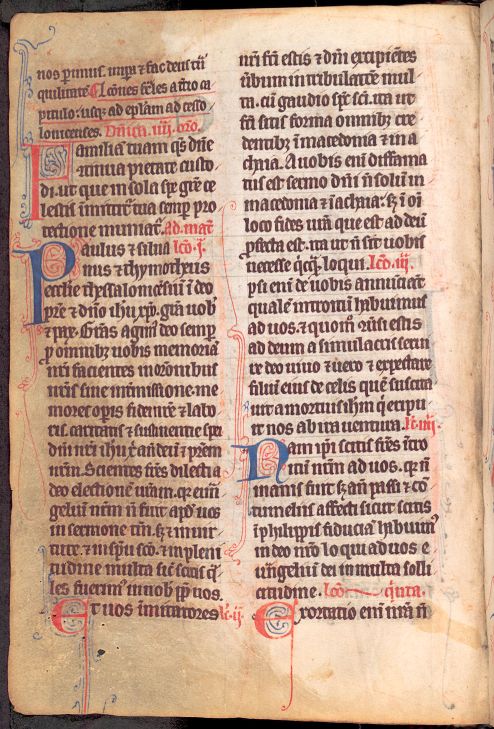 nos p̄muis. inīpa ⁊ fac deus trā
quilitate Lcōnes feēles a tcō ca
pitulo. usq; ad eplam ad tesso
lonicenses. Dn̄ica. iiij. oro.
Familiā tuam qs dn̄e
ɔtinua pietate custo
di. ut que in sola spē grē ce
lestis īnititr tua semp pro
tectione muniat. Ad mat̄
Paulus ⁊ silua Lcō. j.
nus ⁊ thymotheus
ecclie thessalonicēsiū ī deo
p̄re ⁊ dn̄o ih̄u xp̄o. grā uob
⁊ pax. Gr̄as agim deo semp
p omnibz uobis memoriā
uri facientes in or̄onibus
nr̄is sine int̄missione. me
mores opis fidei ur̄e ⁊ labo
ris. caritatis ⁊ sustinentie spei
dn̄i nr̄i ih̄u x̄ an̄ deū ⁊ p̄rem
nr̄m. Scientes fr̄es dilecti a
deo electionē ur̄am. qr euā
geliū nr̄m n̄ fuit apd uos
in sermone tm̄. s; ⁊ in uir
tute. ⁊ in sp̄u sc̄o. ⁊ in pleni
tudine multa sic̄ scitis q̄
les fuerim in uob pp uos.
Et uos īmitatores Lc̄. ij.
nr̄i fc̄i estis ⁊ dn̄i excipiētes
ūbum in tribulatōe mul
ta. cū gaudio sp̄c sc̄i. ita ut
fc̄i sitis forma omnibz cre
dentibz ī macedonia ⁊ in a
chaia. A uobis enī diffama
tus est sermo dn̄i n̄ solū in
macedonia ⁊ ī achaia. s; ī oī
loco fides ur̄a que est ad deū
pfecta est. ita ut n̄ sit nobis
necesse q̄cq̄ loqui. Lcō. iij.
Ipsi enī de uobis annūciāt
qualē introitū habuimus
ad uos. ⁊ quom̄ ɔūsi estis
ad deum a simulacris serui
re deo uiuo ⁊ uero ⁊ expectare
filiū eius de celis quē suscita
uit a mortuis ih̄m q̇ eripu
it nos ab ira uentura. Lc̄. iiij.
Nam ip̄i scitis fr̄es ītro
itū nr̄m ad uos. qr n̄
inanis fuit s; an̄ passi ⁊ cō
tumeliis affecti sicut scitis
ī philippis fiduciā habuim
in deo nr̄o loqui ad uos e
uāgeliū dei in multa solli
citudine. Lcō quīta.
Exortatio enī nr̄a n̄